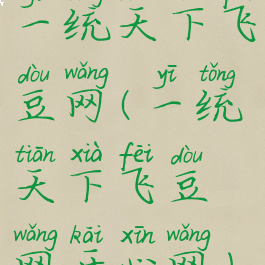 一统天下飞
dòu wǎng yī tǒng
豆网(一统
tiān xià fēi dòu
天下飞豆
wǎng kāi xīn wǎng
网开心网)